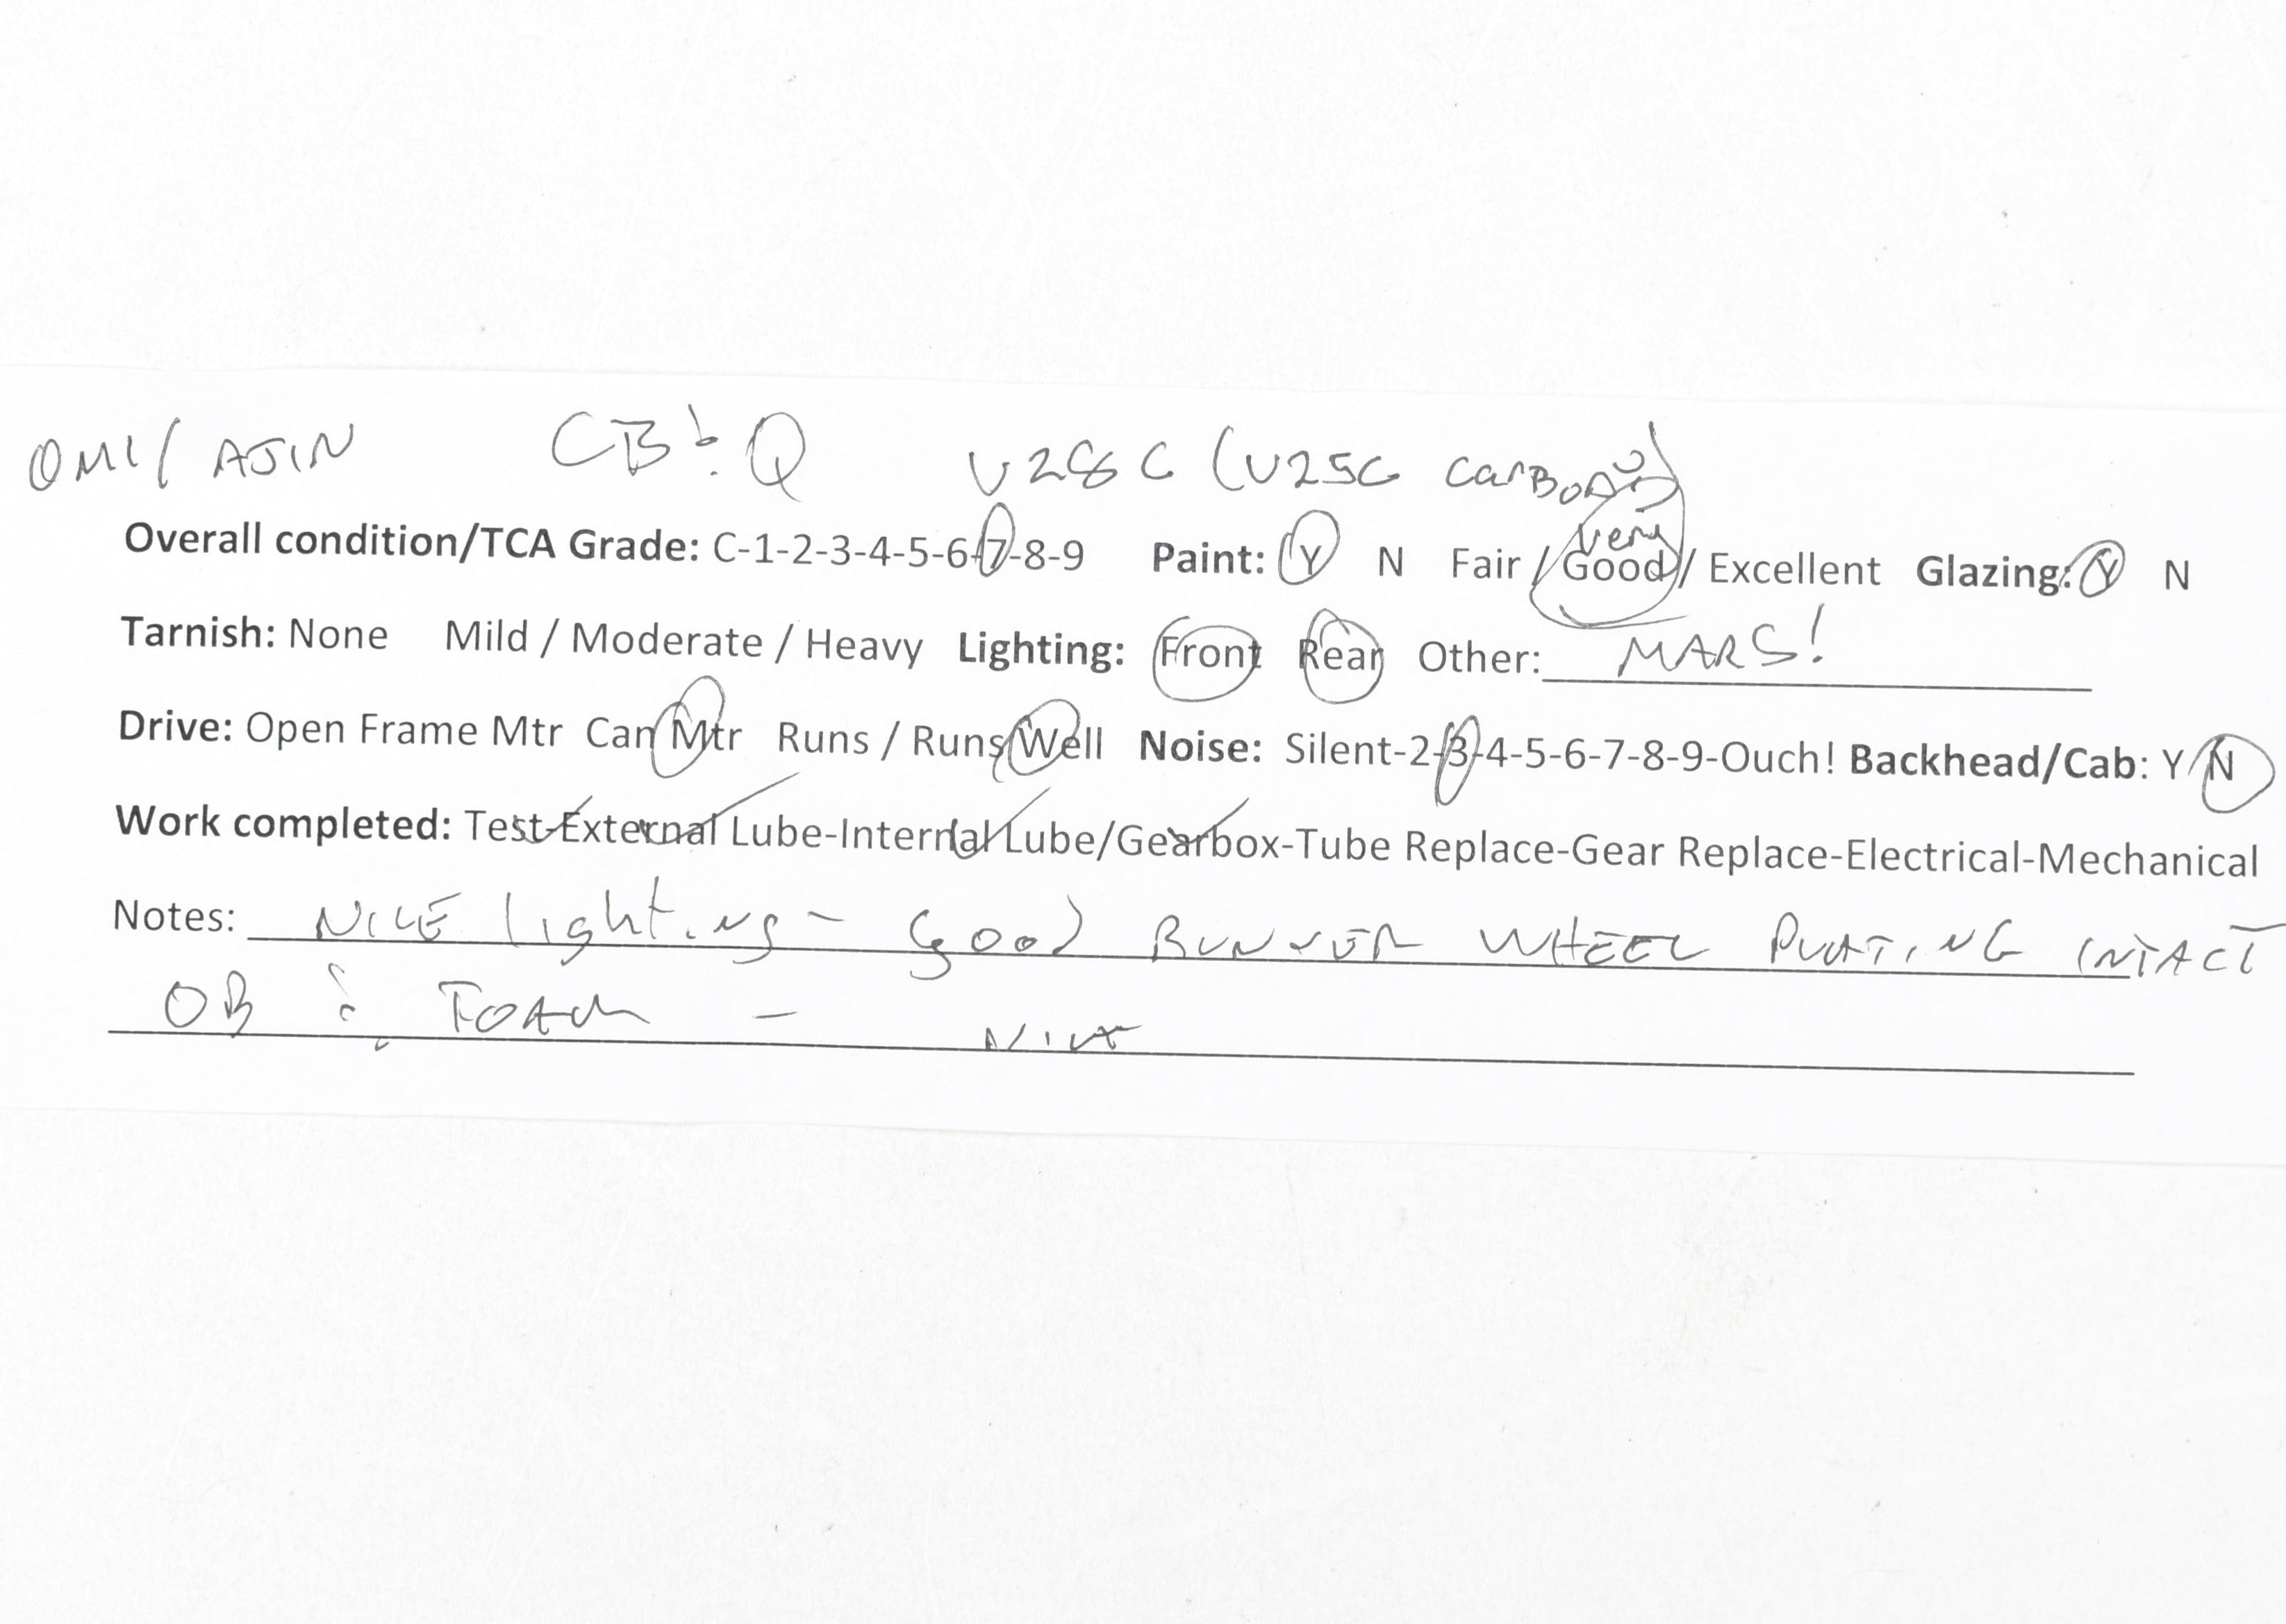 OMI/ AJIN CB&Q U28C (U25C CARBODY)
very
Overall condition/TCA Grade: C-1-2-3-4-5-6-7-8-9 Paint: Y N Fair / Good / Excellent Glazing: Y N
Tarnish: None Mild / Moderate / Heavy Lighting: Front Rear Other: MARS!
Drive: Open Frame Mtr Can Mtr Runs / Runs Well Noise: Silent-2-3-4-5-6-7-8-9-Ouch! Backhead/Cab: Y/N
Work completed: Test-External Lube-Internal Lube/Gearbox-Tube Replace-Gear Replace-Electrical-Mechanical
Notes: NICE lighting - Good RUNNER WHEEL PLATING INTACT
OB & FOAM - NICE